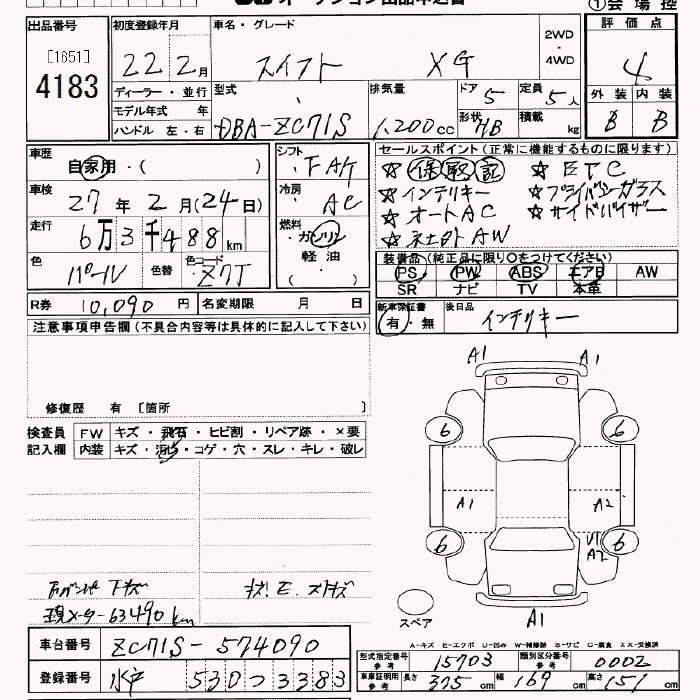 オークション出品申込書
①会場控
出品番号 初度登録年月 車名・グレード 評価点
[1651] 22年2月 スイフト XG 2WD・4WD 4
4183 ディーラー・並行 型式 排気量 ドア 5 定員 5人 外装 内装
モデル年式 年 DBA-ZC71S 1,200cc 形状 HB 積載 kg B B
ハンドル 左・右
車歴 自家用・( ) シフト FAT セールスポイント(正常に機能するものに限ります)
車検 27年2月(24日) 冷房 AC ☆保取記 ☆ETC
走行 6万3千488km 燃料 ガソリン ☆インテリキー ☆プライバシーガラス
軽油 ☆オートAC ☆サイドバイザー
・( ) ☆社外AW
色 パール 色替 色コード Z7T 装備品(純正品に限り○をつけてください)
PS PW ABS エアB AW
R券 10,090円 名変期限 月 日 SR ナビ TV 本革
注意事項申告欄(不具合内容等は具体的に記入して下さい) 新車保証書 後日品
有・無 インテリキー
修復歴 有 [箇所 ]
A1 A1
検査員 FW キズ・飛石・ヒビ割・リペア跡・×要 6 6
記入欄 内装 キズ・汚れ・コゲ・穴・スレ・キレ・破レ
A1 A2
6 U1 A2 6
下キズ キズ、E、スレキズ
現メーター63490km
スペア A1
車台番号 ZC71S-574090 A-キズ E-エクボ U-凹み W-補修跡 S-サビ C-腐食 XX-交換済
登録番号 水戸 530 つ 3383 型式指定番号 参考 15703 類別区分番号 参考 0002
車庫証明用 参考 長さ 375cm 幅 169cm 高さ 151cm